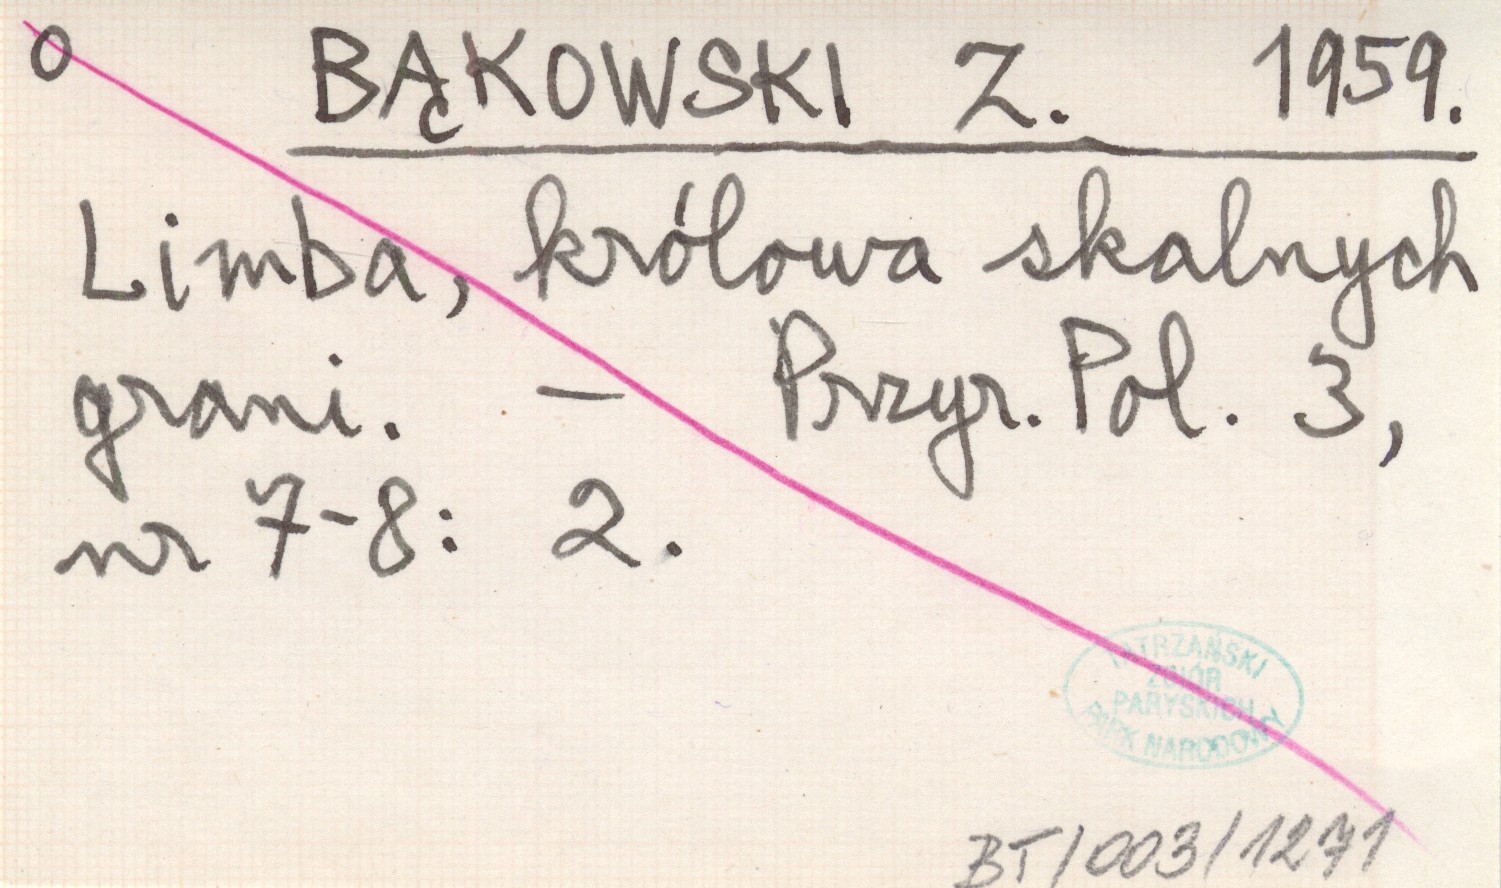 O BĄKOWSKI Z. 1959.
Limba, królowa skalnych
grani. — Przyr. Pol. 3,
nr 7-8: 2.
TATRZAŃSKI
ZBIÓR
PARYSKICH
PARK NARODOWY
BT/003/1271